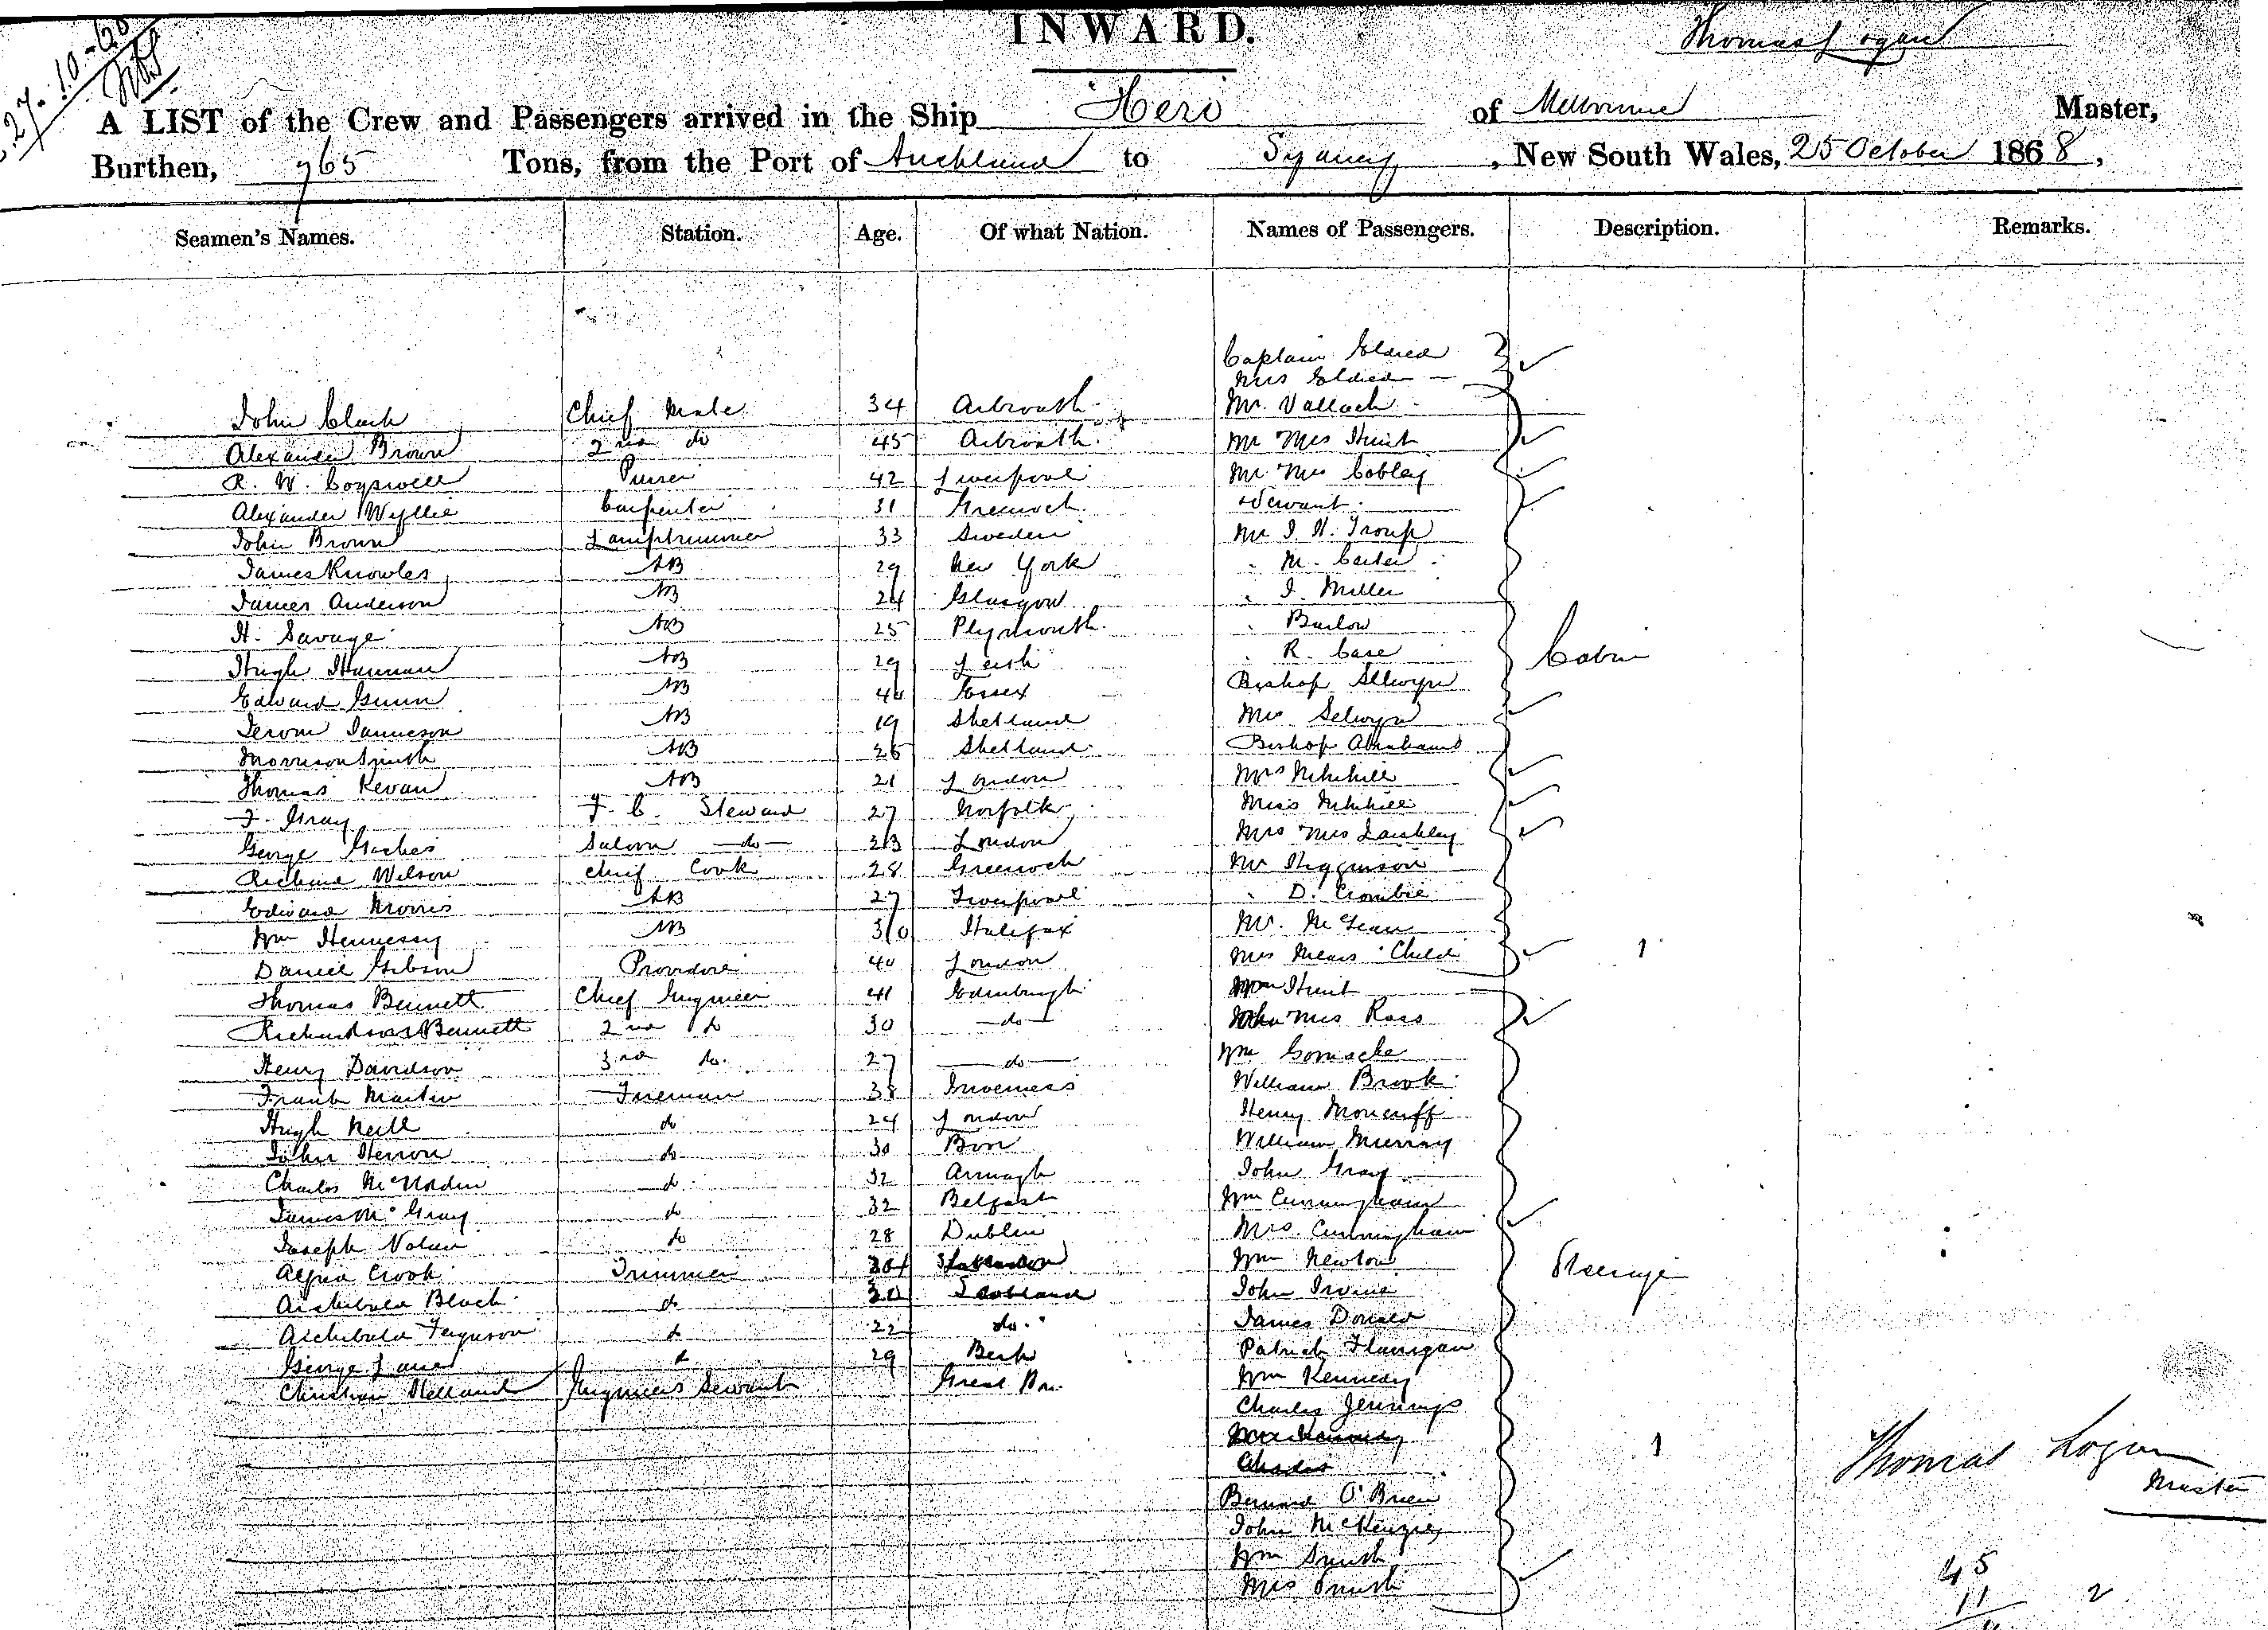 27-10-68
INWARD.
Thomas Logan
A LIST of the Crew and Passengers arrived in the Ship Hero of Melbourne Master,
Burthen, 965 Tons, from the Port of Auckland to Sydney, New South Wales, 25 October 1868,
Seamen's Names. Station. Age. Of what Nation. Names of Passengers. Description. Remarks.
Captain Eldred
Mrs Eldred
John Clark Chief Mate 34 Arbroath Mr. Vallack
Alexander Brown 2nd do 45 Arbroath Mr Mrs Hunt
R. W. Cogswell Purser 42 Liverpool Mr Mrs Cobley
Alexander Wyllie Carpenter 31 Greenock Servant
John Brown Lamptrimmer 33 Sweden Mr J. H. Troup
James Knowles AB 29 New York " M. Carter
James Anderson AB 24 Glasgow " J. Miller
H. Savage AB 25 Plymouth " Barlow
Hugh Hannan AB 29 Leith " R. Case Cabin
Edward Gunn AB 40 Essex Bishop Selwyn
Jerom Jamieson AB 19 Shetland Mrs Selwyn
Morrison Smith AB 25 Shetland Bishop Abraham
Thomas Kevan AB 21 London Mrs
F. Gray F. C. Steward 27 Norfolk Miss
George Saloon do 23 London Mrs Mrs Laishley
Richard Wilson Chief Cook 28 Greenock Mr Higginson
Edward Morris AB 27 Liverpool " D. Crombie
Wm Hennessy AB 30 Halifax Mr. McLean
Daniel Gibson Providore 40 London Mrs Mears Child 1
Thomas Bennett Chief Engineer 41 Edinburgh Wm Hunt
Richardson Bennett 2nd do 30 do John Mrs Ross
Henry Davidson 3rd do. 27 do Wm
Frank Martin Fireman 38 Inverness William Brook
Hugh Neill do 24 London Henry Moncrieff
John Herron do 30 William Murray
Charles do 32 Armagh John Gray
James McGray do 32 Belfast Wm Cunningham
Joseph Nolan do 28 Dublin Mrs. Cunningham
Alfred Crook Trimmer Wm Newton Steerage
Archibald Black do 20 Scotland John Irvine
Archibald Ferguson do 22 do. James Donald
George Lane do 29 Patrick Flanigan
Christian Engineers Servant Great Wm Kennedy
Charles Jennings
1
Charles
Thomas Logan
Master
Bernard O'Brien
John McKenzie
Wm Smith
Mrs Smith
45
11 2